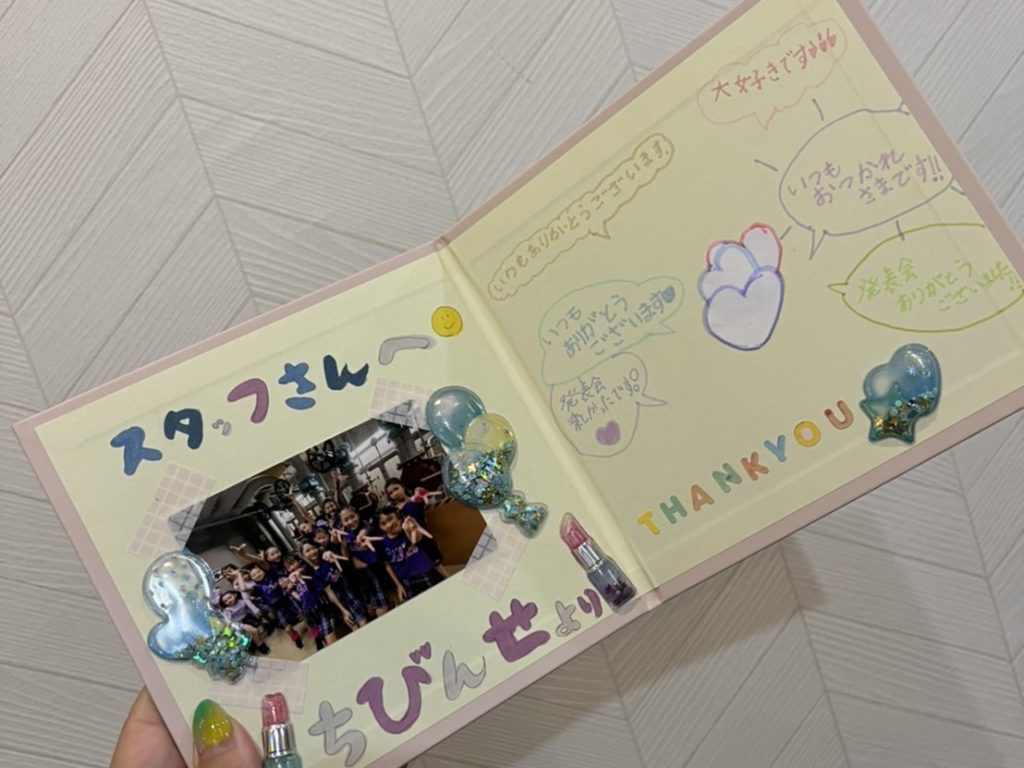 スタッフさんへ
ちびんせより
いつもありがとうございます。
いつも
ありがとう
ございます♥
発表会
楽しかったです。
大好きです
いつも
おつかれ
さまです!!
発表会
ありがとう
ございました!!
THANKYOU